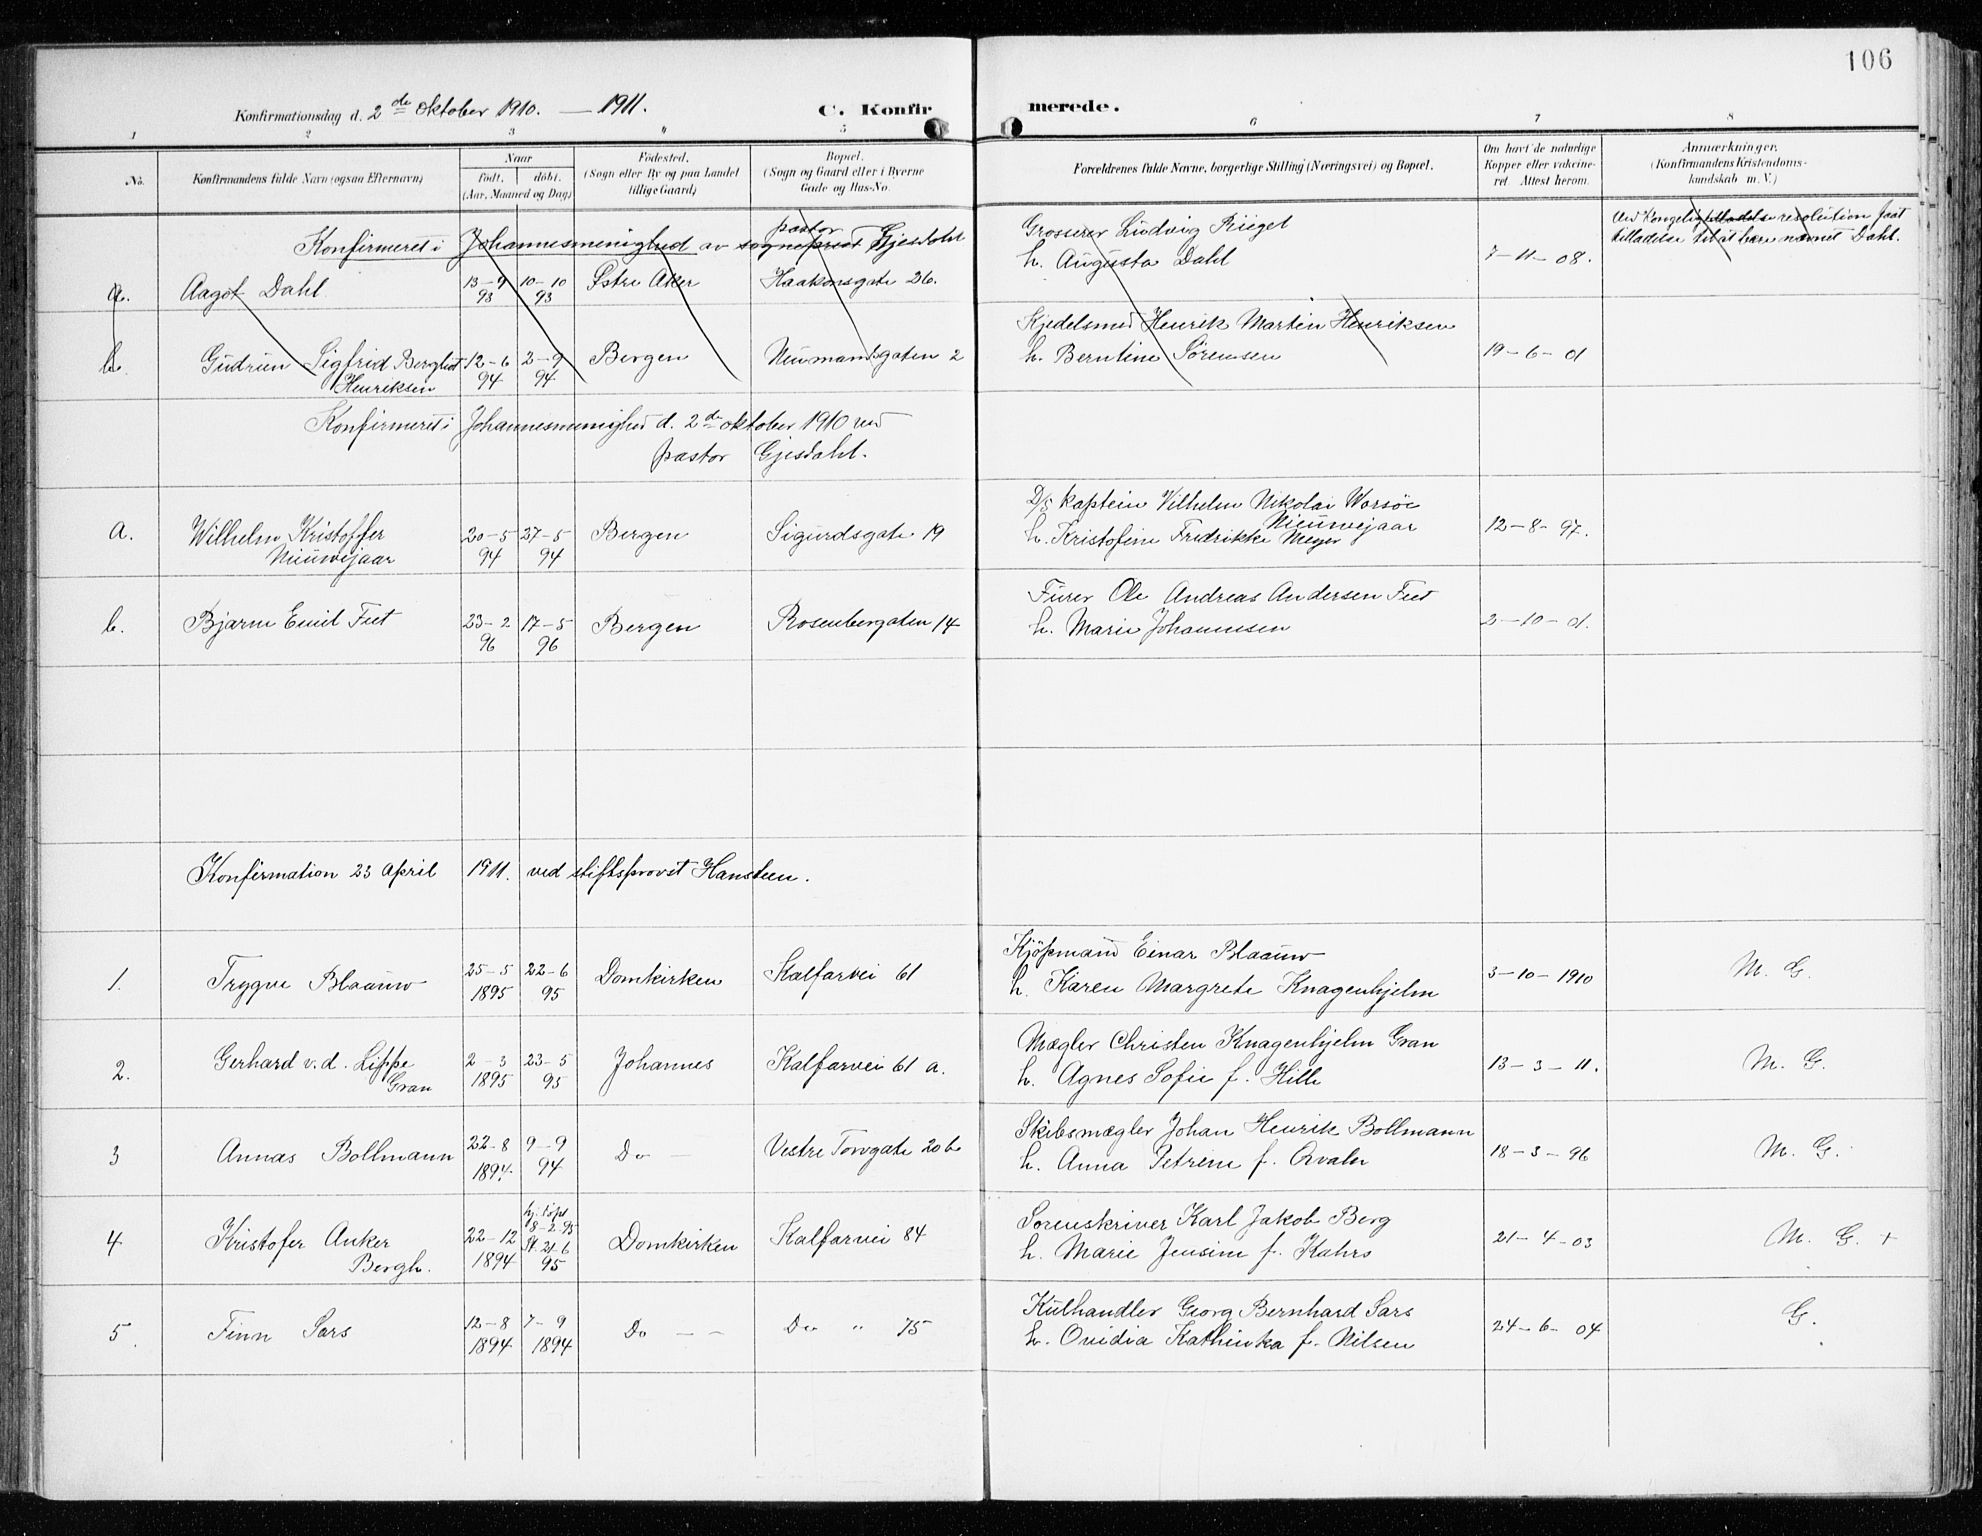 106
Konfirmationsdag d. 2de oktober 1910. — 1911. C. Konfirmerede.
1 2 3 4 5 6 7 8
No. Konfirmandens fulde Navn (ogsaa Efternavn) Naar født. døbt. (Aar, Maaned og Dag) Fødested. (Sogn eller By og paa Landet tillige Gaard) Bopæl. (Sogn og Gaard eller i Byerne Gade og Hus-No. Forældrenes fulde Navne, borgerlige Stilling (Næringsvei) og Bopæl. Om havt de naturlige Kopper eller vakcineret. Attest herom. Anmærkninger. (Konfirmandens Kristendomskundskab m. V.)
Konfirmeret i Johannesmenighed av sogneprest pastor Gjesdahl
a. Aagot Dahl 13-9 93 10-10 93 Østre Aker Haakonsgate 26.
Grosserer Ludvig Riegel
h. Augusta Dahl 7-11-08.
Ved Kongelig tilladelse resolution faat
tilladelse til at bære navnet Dahl.
b. Gudrun Sigfrid Bergliot 12-6 94 2-9 94 Bergen Neumansgaten 2
Henriksen
Kjedelsmed Henrik Martin Henriksen
h. Berntine Sørensen 19-6-01
Konfirmeret i Johannesmenighed d. 2de oktober 1910 ved
pastor Gjesdahl.
a. Wilhelm Kristoffer 20-5 94 27-5 94 Bergen Sigurdsgate 19
Nieuwejaar
D/s kaptein Vilhelm Nikolai Worsøe
Nieuwejaar
h. Kristofine Fredrikke Meyer 12-8-97.
b. Bjarne Emil Feet 23-2 96 17-5 96 Bergen Rosenbergaten 14
Furer Ole Andreas Andersen Feet
h. Marie Johannesen 2-10-01.
Konfirmation 23 April 1911. ved stiftsprovst Hansteen.
1. Trygve Blaauw 25-5 1895 22-6 95 Domkirken Kalfarvei 61
Kjøpmand Einar Blaauw
h. Karen Margrete Knagenhjelm 3-10-1910 M. G.
2. Gerhard v. d. Lippe 2-3 1895 23-5 95 Johannes Kalfarvei 61 a.
Gran
Mægler Christen Knagenhjelm Gran
h. Agnes Sofie f. Hille 13-3-11. M. G.
3 Annas Bollmann 22-8 1894. 9-9 94 Do — Vestre Torvgate 20 b
Skibsmægler Johan Henrik Bollmann
h. Anna Petrine f. 18-3-96 M. G.
4 Kristofer Anker 22-12 1894 hj. døpt 8-2 95 St. 21-6 95 Domkirken Kalfarvei 84
Bergh.
Sorenskriver Karl Jakob Berg
h. Marie Jensine f. Kahrs 21-4-03 M. G. +
5. Finn Sars 12-8 1894 7-9 1894 Do — — Do " 75
Kulhandler Georg Bernhard Sars
h. Ovidia Kathinka f. Nilsen 24-6-04 G.